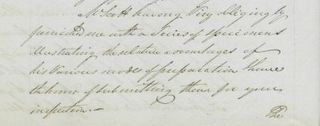 Mr Scott having very obligingly
furnished me with a Series of Specimens
illustrating the relative advantages of
his various modes of preparation I have
the honor of submitting them for your
inspection –